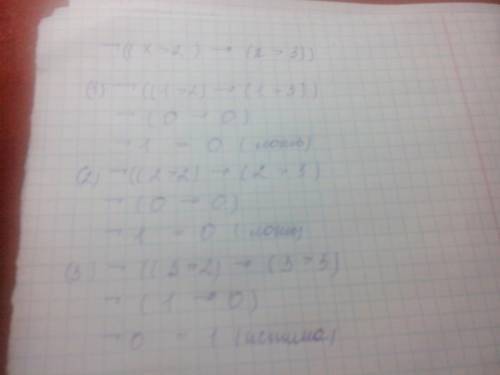 ¬((x>2) → (2>3))
(1) ¬((1>2) → (1>3))
¬(0 → 0)
¬1 = 0 (ложь)
(2) ¬((2>2) → (2>3)
¬(0 → 0)
¬1 = 0 (ложь)
(3) ¬((3>2) → (3>3)
¬(1 → 0)
¬0 = 1 (истина)